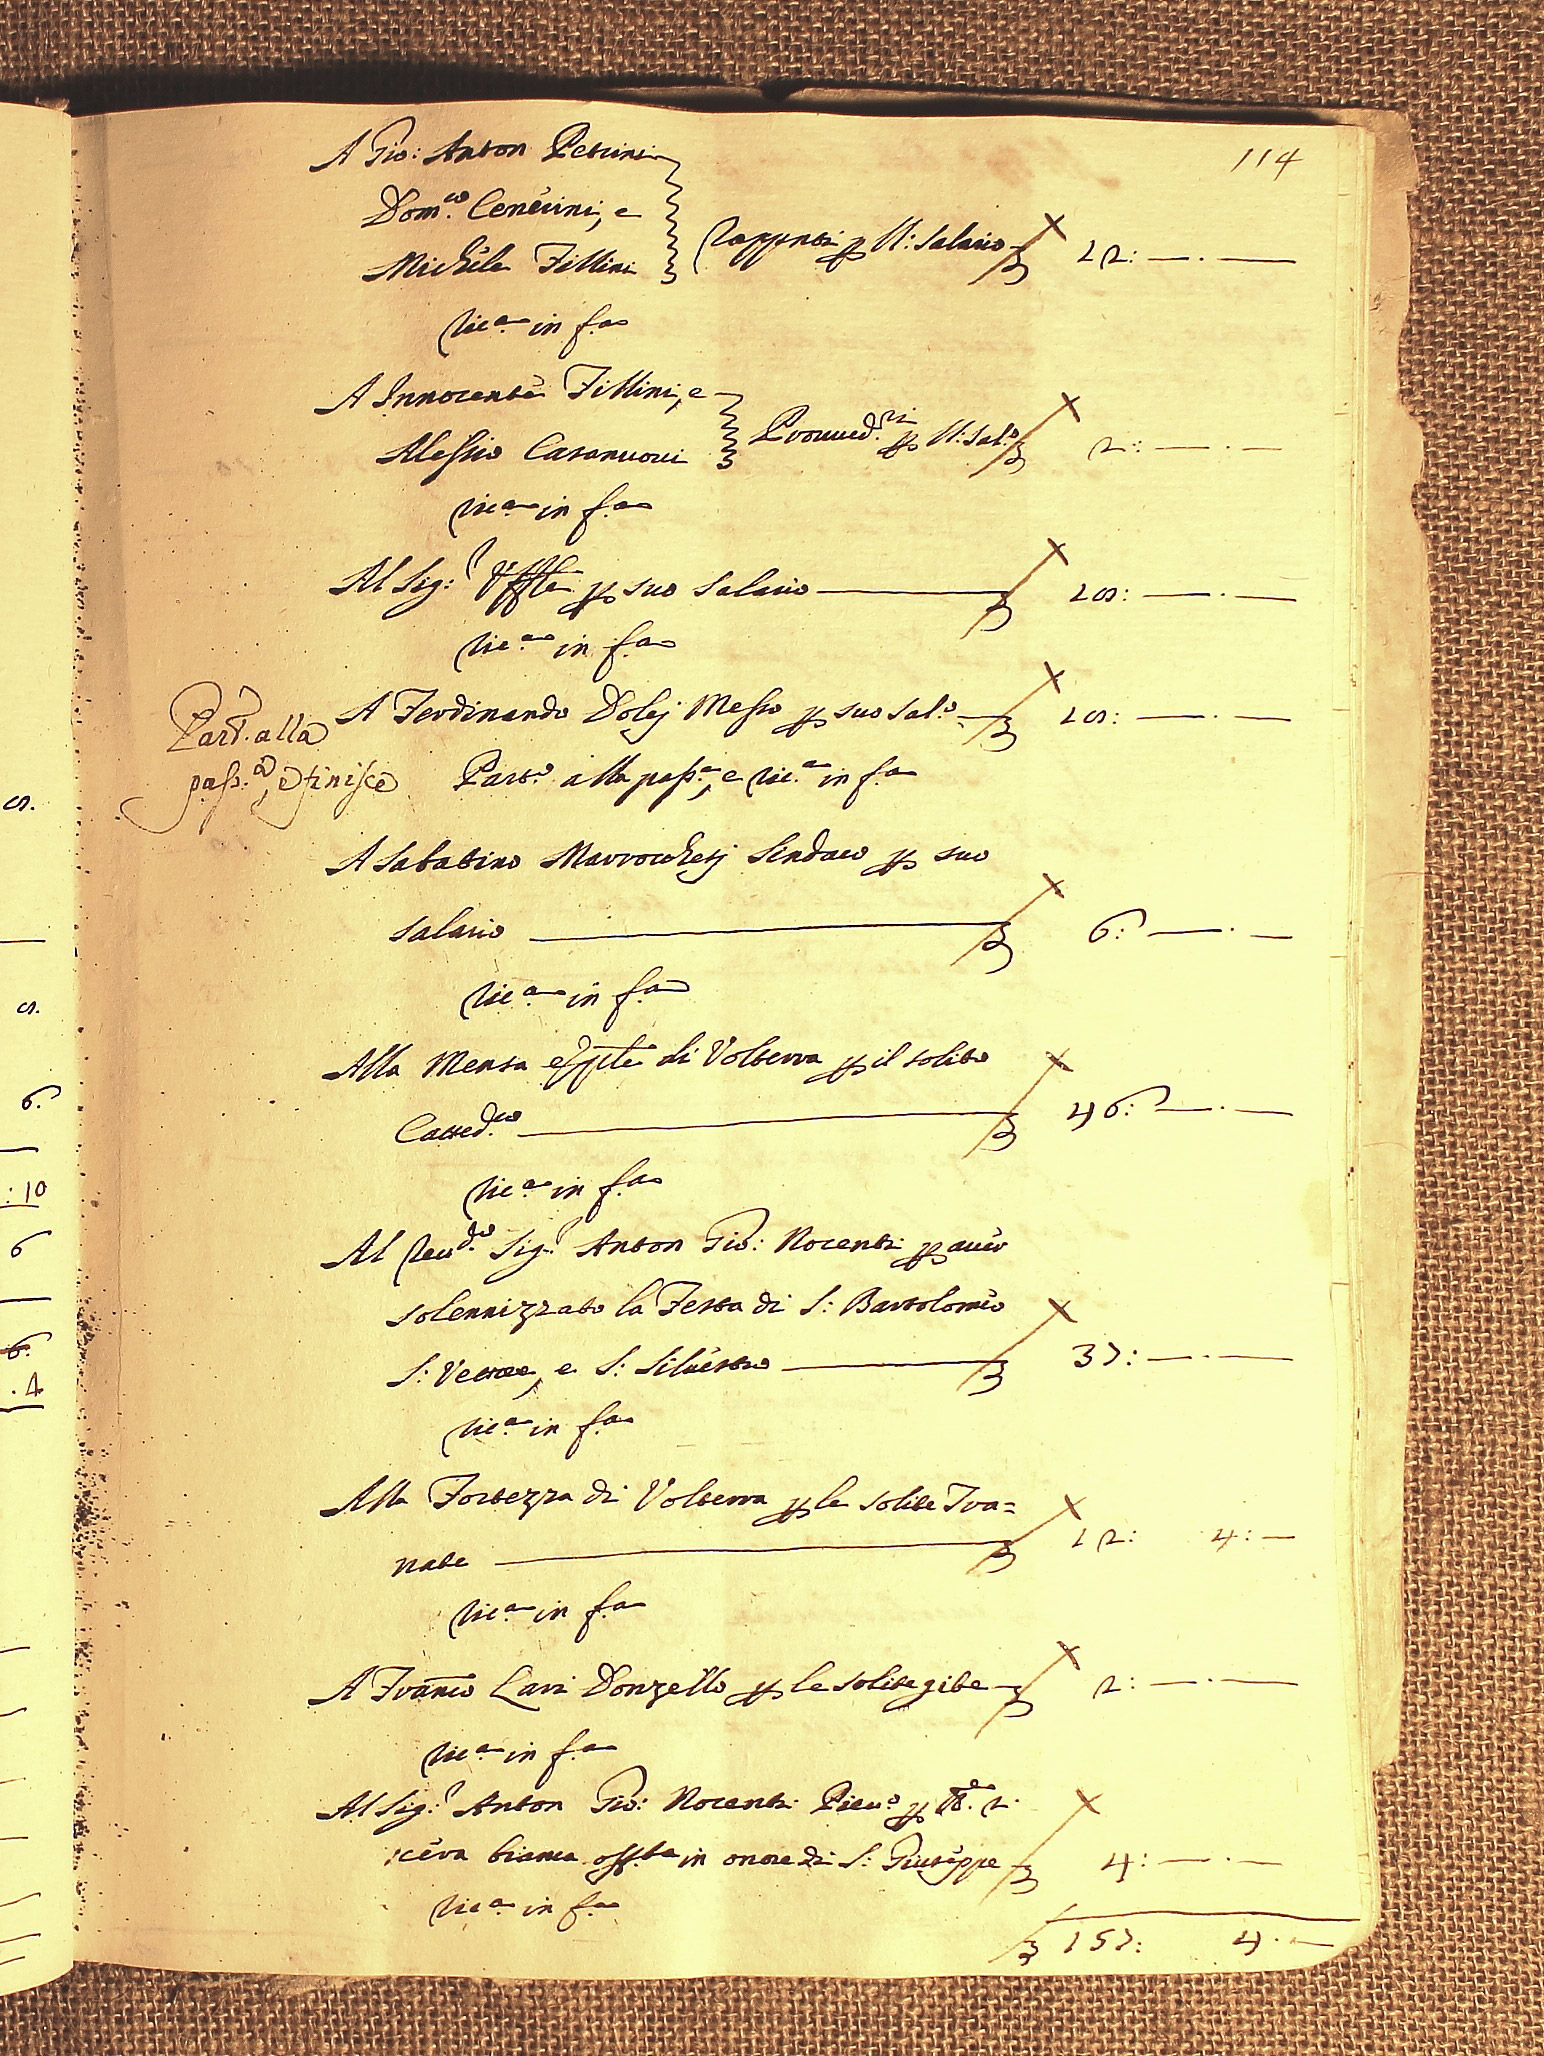 114
A Gio: Anton Petrini
Dom.co Cenerini, e
Michele Fillini
Rappnti p II: Salario 12: — . —
Ric.a in f.a
A Innocente Fillini, e
Alessio Casanuovi
Prouued.ri p II: Sal.o 2: — . —
Ric.a in f.a
Al Sig:r Uffle p suo Salario 18: — . —
Ric.a in f.a
A Ferdinando Dolej Messo p suo Sal.o 18: — . —
Part.a alla
pass.a, e finisce
Part.o alla pass.a, e ric.a in f.a
A Sabatino Marrocchesj Sindaco p suo
salario 6: — . —
Ric.a in f.a
Alla Mensa epple di Volterra p il solito
Catted.co 46: — . —
Ric.a in f.a
Al Reu.do Sig.r Anton Gio: Nocenti p auer
solennizzato la Festa di S: Bartolomeo
S: Vettore, e S: Siluestro 37: — . —
Ric.a in f.a
Alla Fortezza di Volterra p le solite Gra=
nate 12: 4: —
Ric.a in f.a
A Franco Lari Donzello p le solite gite 2: — . —
Ric.a in f.a
Al Sig:r Anton Gio: Nocenti Pieu.o p lb.e 2.
cera bianca off.ta in onore di S: Giuseppe 4: — . —
Ric.a in f.a
157: 4. —
5.
5.
6.
: 10
6
6.
. 4